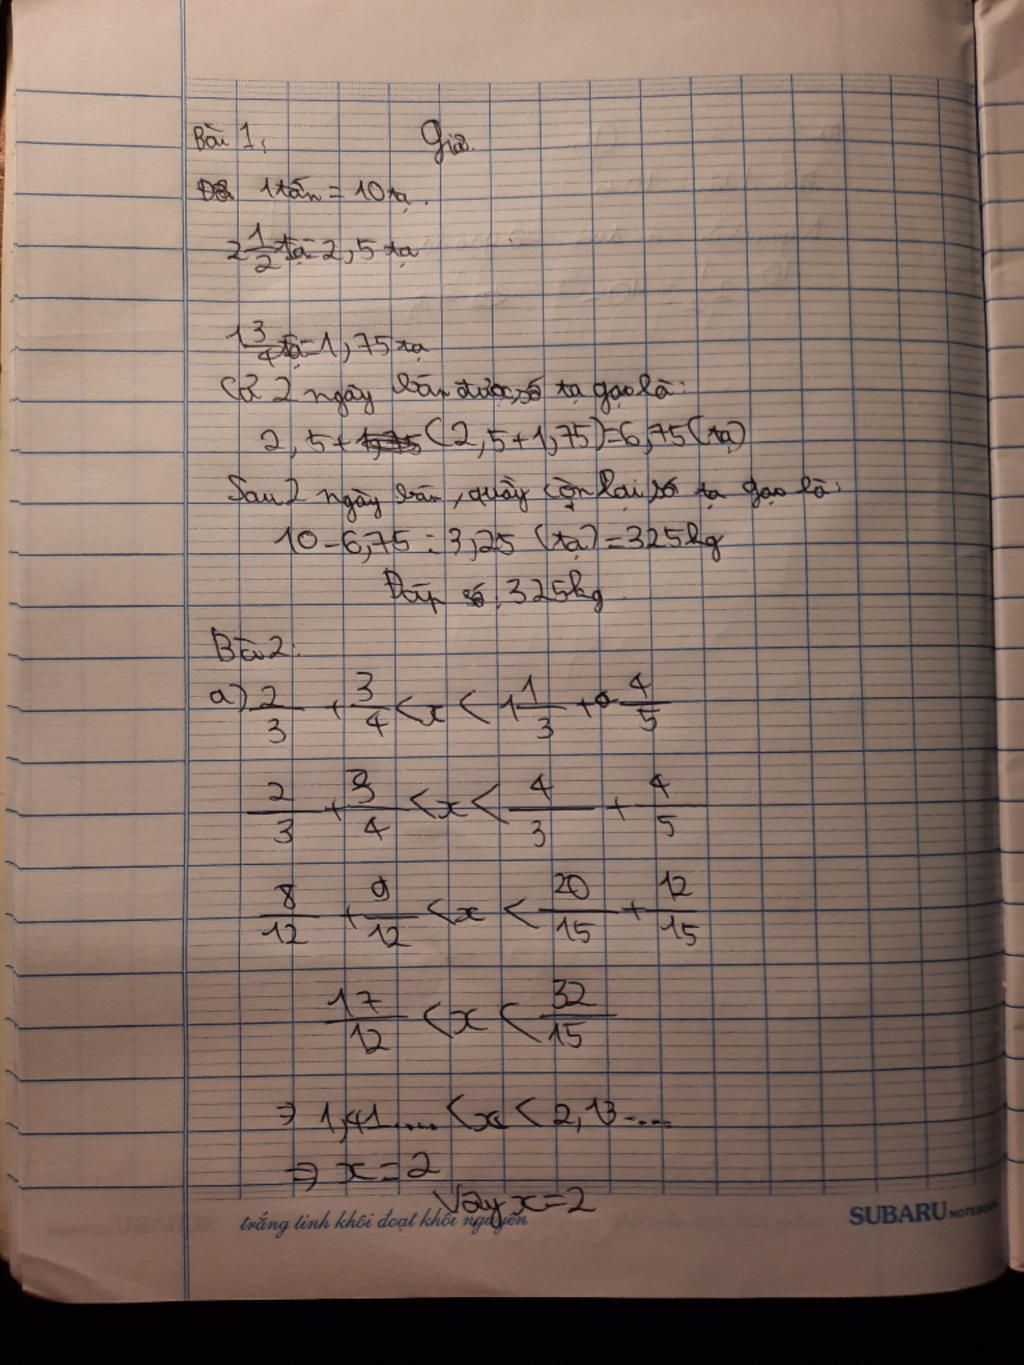 Bài 1: Giải
1 tấn = 10 tạ.
2 1/2 tạ = 2,5 tạ
1 3/4 tạ = 1,75 tạ
Cả 2 ngày bán được số tạ gạo là:
2,5 + (2,5 + 1,75) = 6,75 (tạ)
Sau 2 ngày bán, quầy còn lại số tạ gạo là:
10 - 6,75 = 3,25 (tạ) = 325kg
Đáp số: 325kg
Bài 2:
a) 2/3 + 3/4 < x < 1 1/3 + 4/5
2/3 + 3/4 < x < 4/3 + 4/5
8/12 + 9/12 < x < 20/15 + 12/15
17/12 < x < 32/15
⇒ 1,41.... < x < 2,13....
⇒ x = 2
Vậy x = 2
trắng tinh khôi đoạt khôi nguyên SUBARU NOTEBOOK